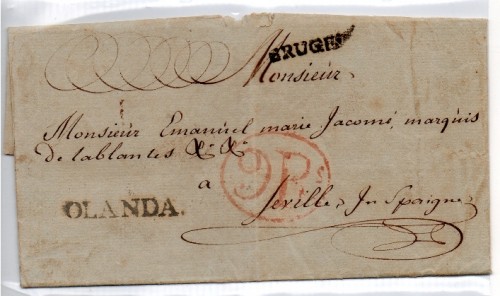 BRUGES
Monsieur
Monsieur Emanuel marie Jacomé, marquis
de lablantes & &
a
9 Rs
OLANDA.
Seville, In Spaigne